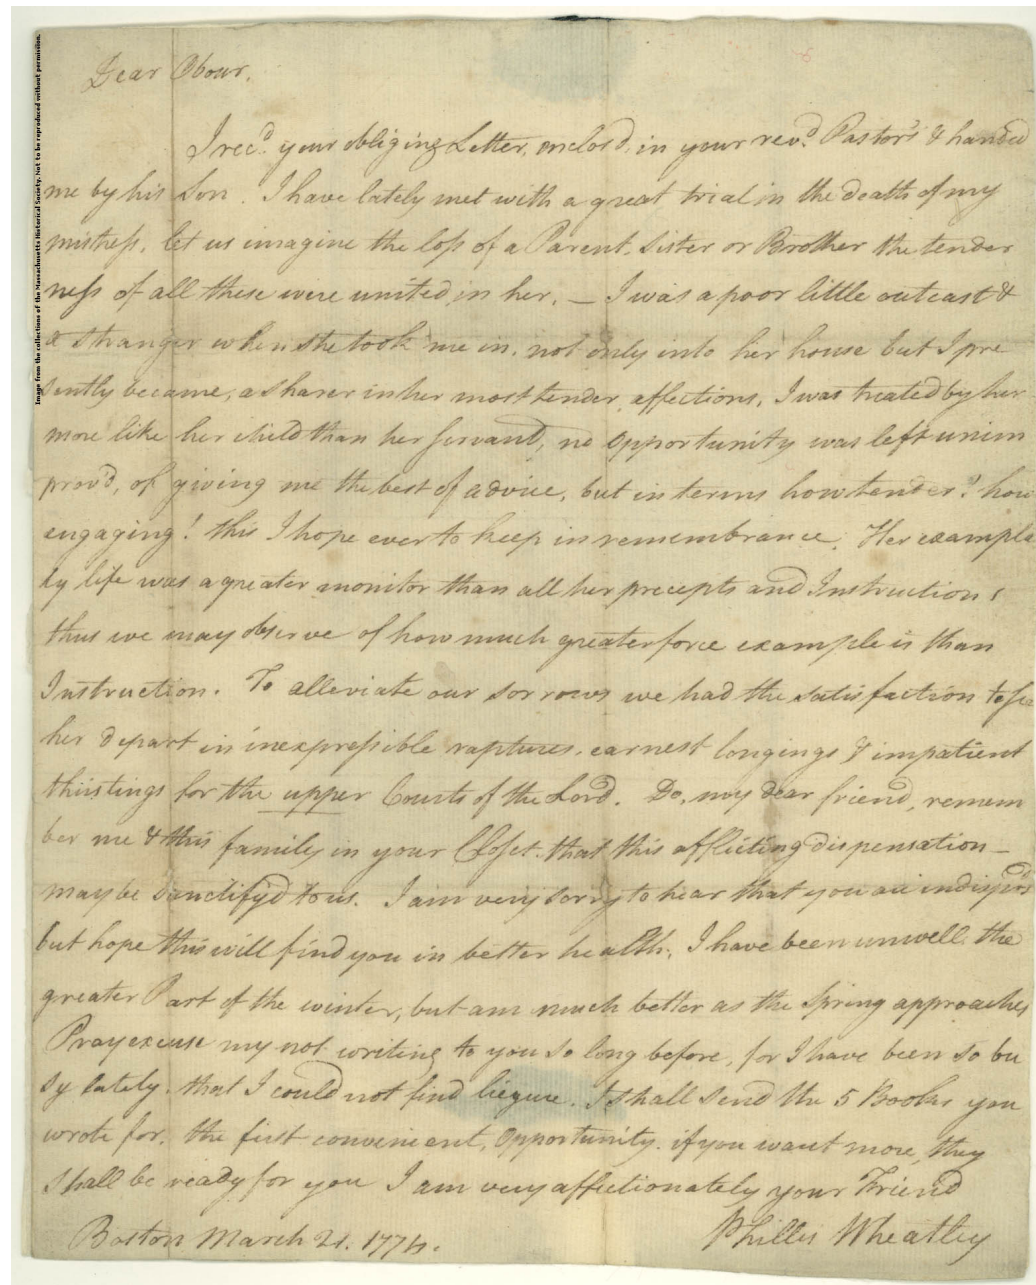 Image from the collections of the Massachusetts Historical Society. Not to be reproduced without permission.
Dear Obour,
I recd. your obliging Letter, enclosd, in your revd. Pastor's & handed
me by his Son. I have lately met with a great trial in the death of my
mistress, let us imagine the loss of a Parent, Sister or Brother the tender
ness of all these were united in her. — I was a poor little outcast &
a stranger when she took me in, not only into her house but I pre
sently became, a sharer in her most tender affections. I was treated by her
more like her child than her Servant, no opportunity was left unim
prov'd, of giving me the best of advice, but in terms how tender! how
engaging! this I hope ever to keep in remembrance. Her exampla
ry life was a greater monitor than all her precepts and Instructions
thus we may observe of how much greater force example is than
Instruction. To alleviate our sorrows we had the satisfaction to see
her depart in inexpressible raptures, earnest longings & impatient
thirstings for the upper Courts of the Lord. Do, my dear friend, remem
ber me & this family in your Closet, that this afflicting dispensation —
may be sanctify'd to us. I am very sorry to hear that you are indispos'd
but hope this will find you in better health; I have been unwell the
greater Part of the winter, but am much better as the Spring approaches
Pray excuse my not writing to you so long before, for I have been so bu
sy lately, that I could not find liezure. I shall send the 5 Books you
wrote for, the first convenient, opportunity. if you want more, they
shall be ready for you I am very affectionately your Friend
Boston March 21. 1774.
Phillis Wheatley